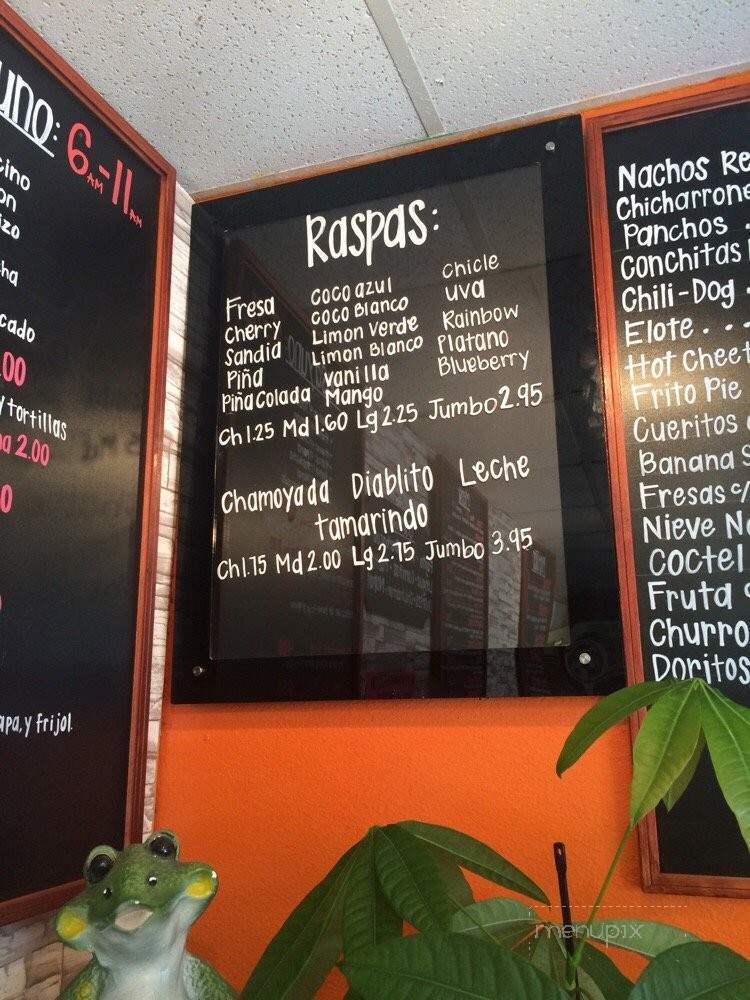 uno: 6AM-11AM
cino
on
izo
cha
cado
.00
y tortillas
na 2.00
0
apa, y frijol.
Raspas:
Fresa
Cherry
Sandia
Piña
Piña Colada
coco azul
coco Blanco
Limon Verde
Limon Blanco
vanilla
Mango
chicle
uva
Rainbow
Platano
Blueberry
Ch 1.25 Md 1.60 Lg 2.25 Jumbo 2.95
Chamoyada Diablito Leche
tamarindo
Ch 1.75 Md 2.00 Lg 2.75 Jumbo 3.95
Nachos Re
Chicharrone
Panchos .
Conchitas
Chili-Dog .
Elote...
Hot Cheet
Frito Pie
Cueritos
Banana S
Fresas c/
Nieve Na
Coctel
Fruta c
Churro
Doritos
menupix